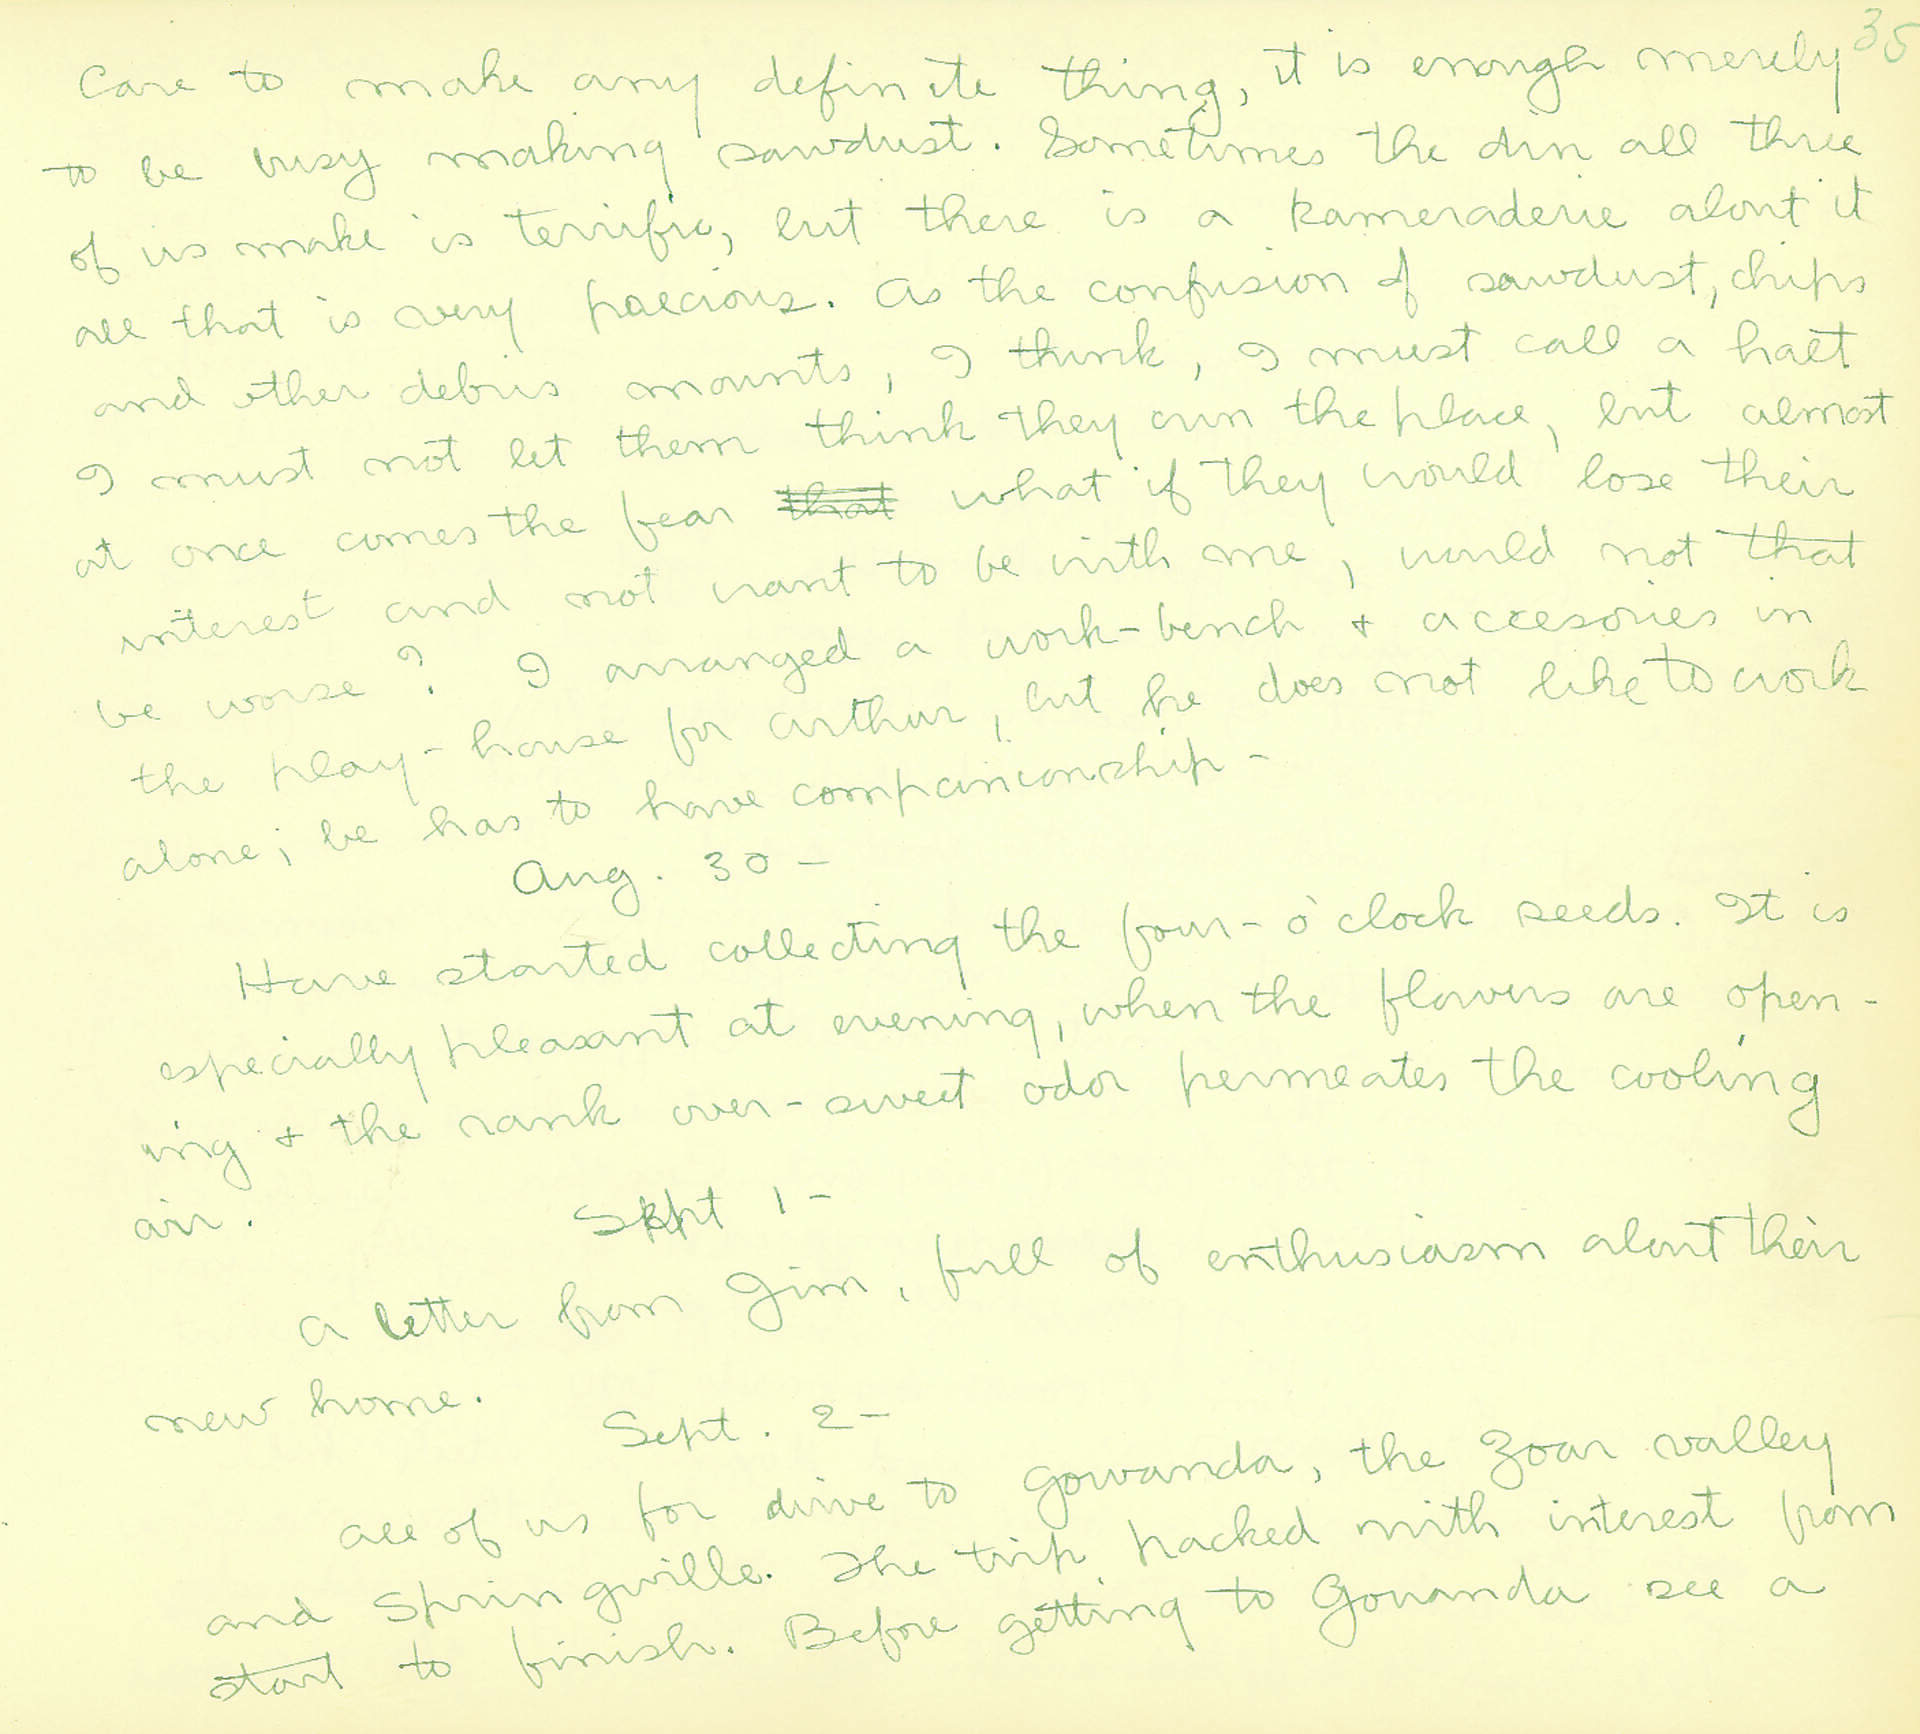 35
Care to make any definite thing, it is enough merely
to be busy making sawdust. Sometimes the din all three
of us make is terrific, but there is a kameraderie about it
all that is very precious. As the confusion of sawdust, chips
and other debris mounts, I think, I must call a halt
I must not let them think they run the place, but almost
at once comes the fear that what if they would lose their
interest and not want to be with me, would not that
be worse? I arranged a work-bench + accesories in
the play-house for Arthur, but he does not like to work
alone; he has to have companionship -
Aug. 30 -
Have started collecting the four-o'clock seeds. It is
especially pleasant at evening, when the flowers are open-
ing + the rank over-sweet odor permeates the cooling
air.
Sept 1 -
A letter from Jim, full of enthusiasm about their
new home.
Sept. 2 -
All of us for drive to Gowanda, the Zoar valley
and Springville. The trip packed with interest from
start to finish. Before getting to Gowanda see a